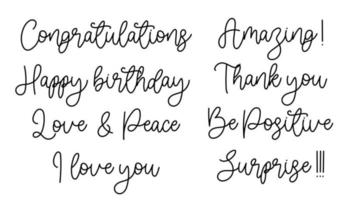 Congratulations
Amazing!
Happy birthday
Thank you
Love & Peace
Be Positive
I love you
Surprise!!!